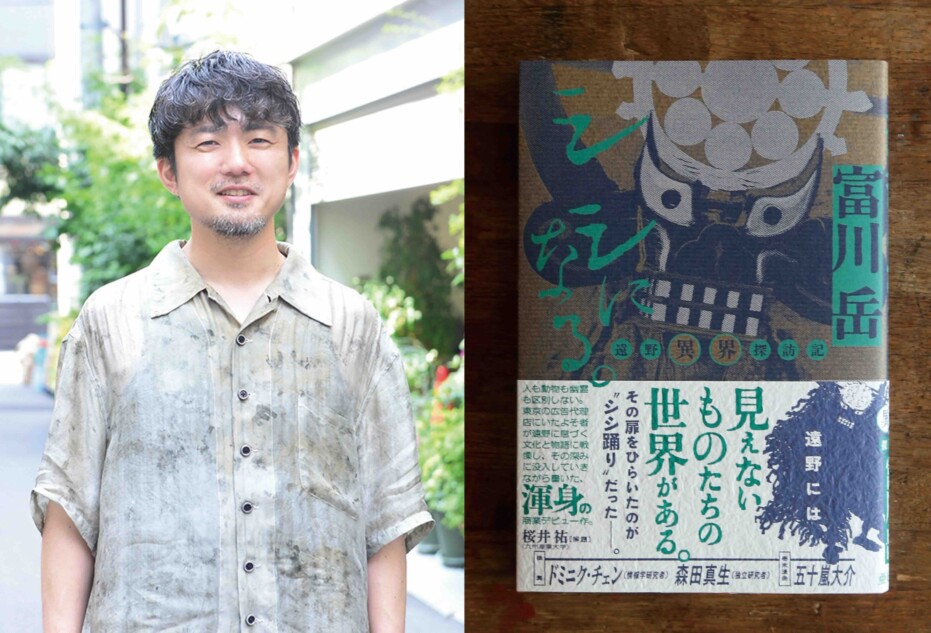 シシになる。
富川岳
遠野異界探訪記
遠野には、
見えない
ものたちの
世界がある。
その扉をひらいたのが
“シシ踊り”だった――。
人も動物も幽霊
も区別しない。
東京の広告代理
店にいたよそ者
が遠野に息づく
文化と物語に戦
慄し、その深み
に没入していき
ながら書いた、
渾身の
商業デビュー作。
桜井祐【解題】
(九州産業大学)
推薦
ドミニク・チェン(情報学研究者)
森田真生(独立研究者)
五十嵐大介